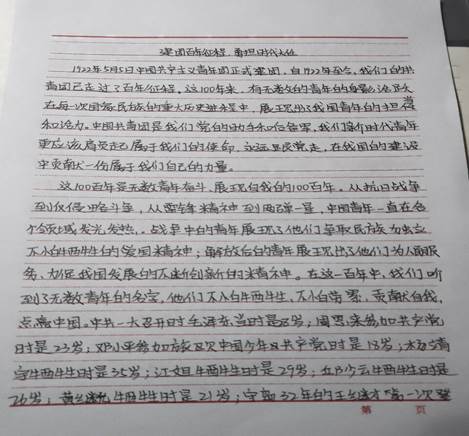 建团百年征程，勇担时代大任
1922年5月5日中国共产主义青年团正式建团，自1922年至今，我们的共
青团已走过了百年征程。这100年来，有无数的青年的身影活跃
在每一次国家民族的重大历史进程中，展现出我国青年的担当
和活力。中国共青团是我们党的助手和后备军，我们新时代青年
更应该肩负起属于我们的使命，永远跟党走，在我国的建设
中贡献一份属于我们自己的力量。
这100年是无数青年奋斗，展现自我的100年。从抗日战争
到反侵略斗争，从雷锋精神到两弹一星，中国青年一直在各
个领域发光发热。战争中的青年展现了他们争取民族
不怕牺牲的爱国精神；解放后的青年展现出了他们为人民服
务，为促我国发展的不断创新的精神。在这一百年中，我们听
到了无数青年的名字，他们不怕牺牲，不怕苦累，贡献自我，
点亮中国。中共一大召开时毛泽东当时28岁；周恩来参加共产党
时是23岁；邓小平参加旅欧中国少年共产党时是18岁；杨靖
宇牺牲时是35岁；江姐牺牲时是29岁；邱少云牺牲时是
26岁；黄继光牺牲时是21岁；守岛32年的王继才第一次登
第 页